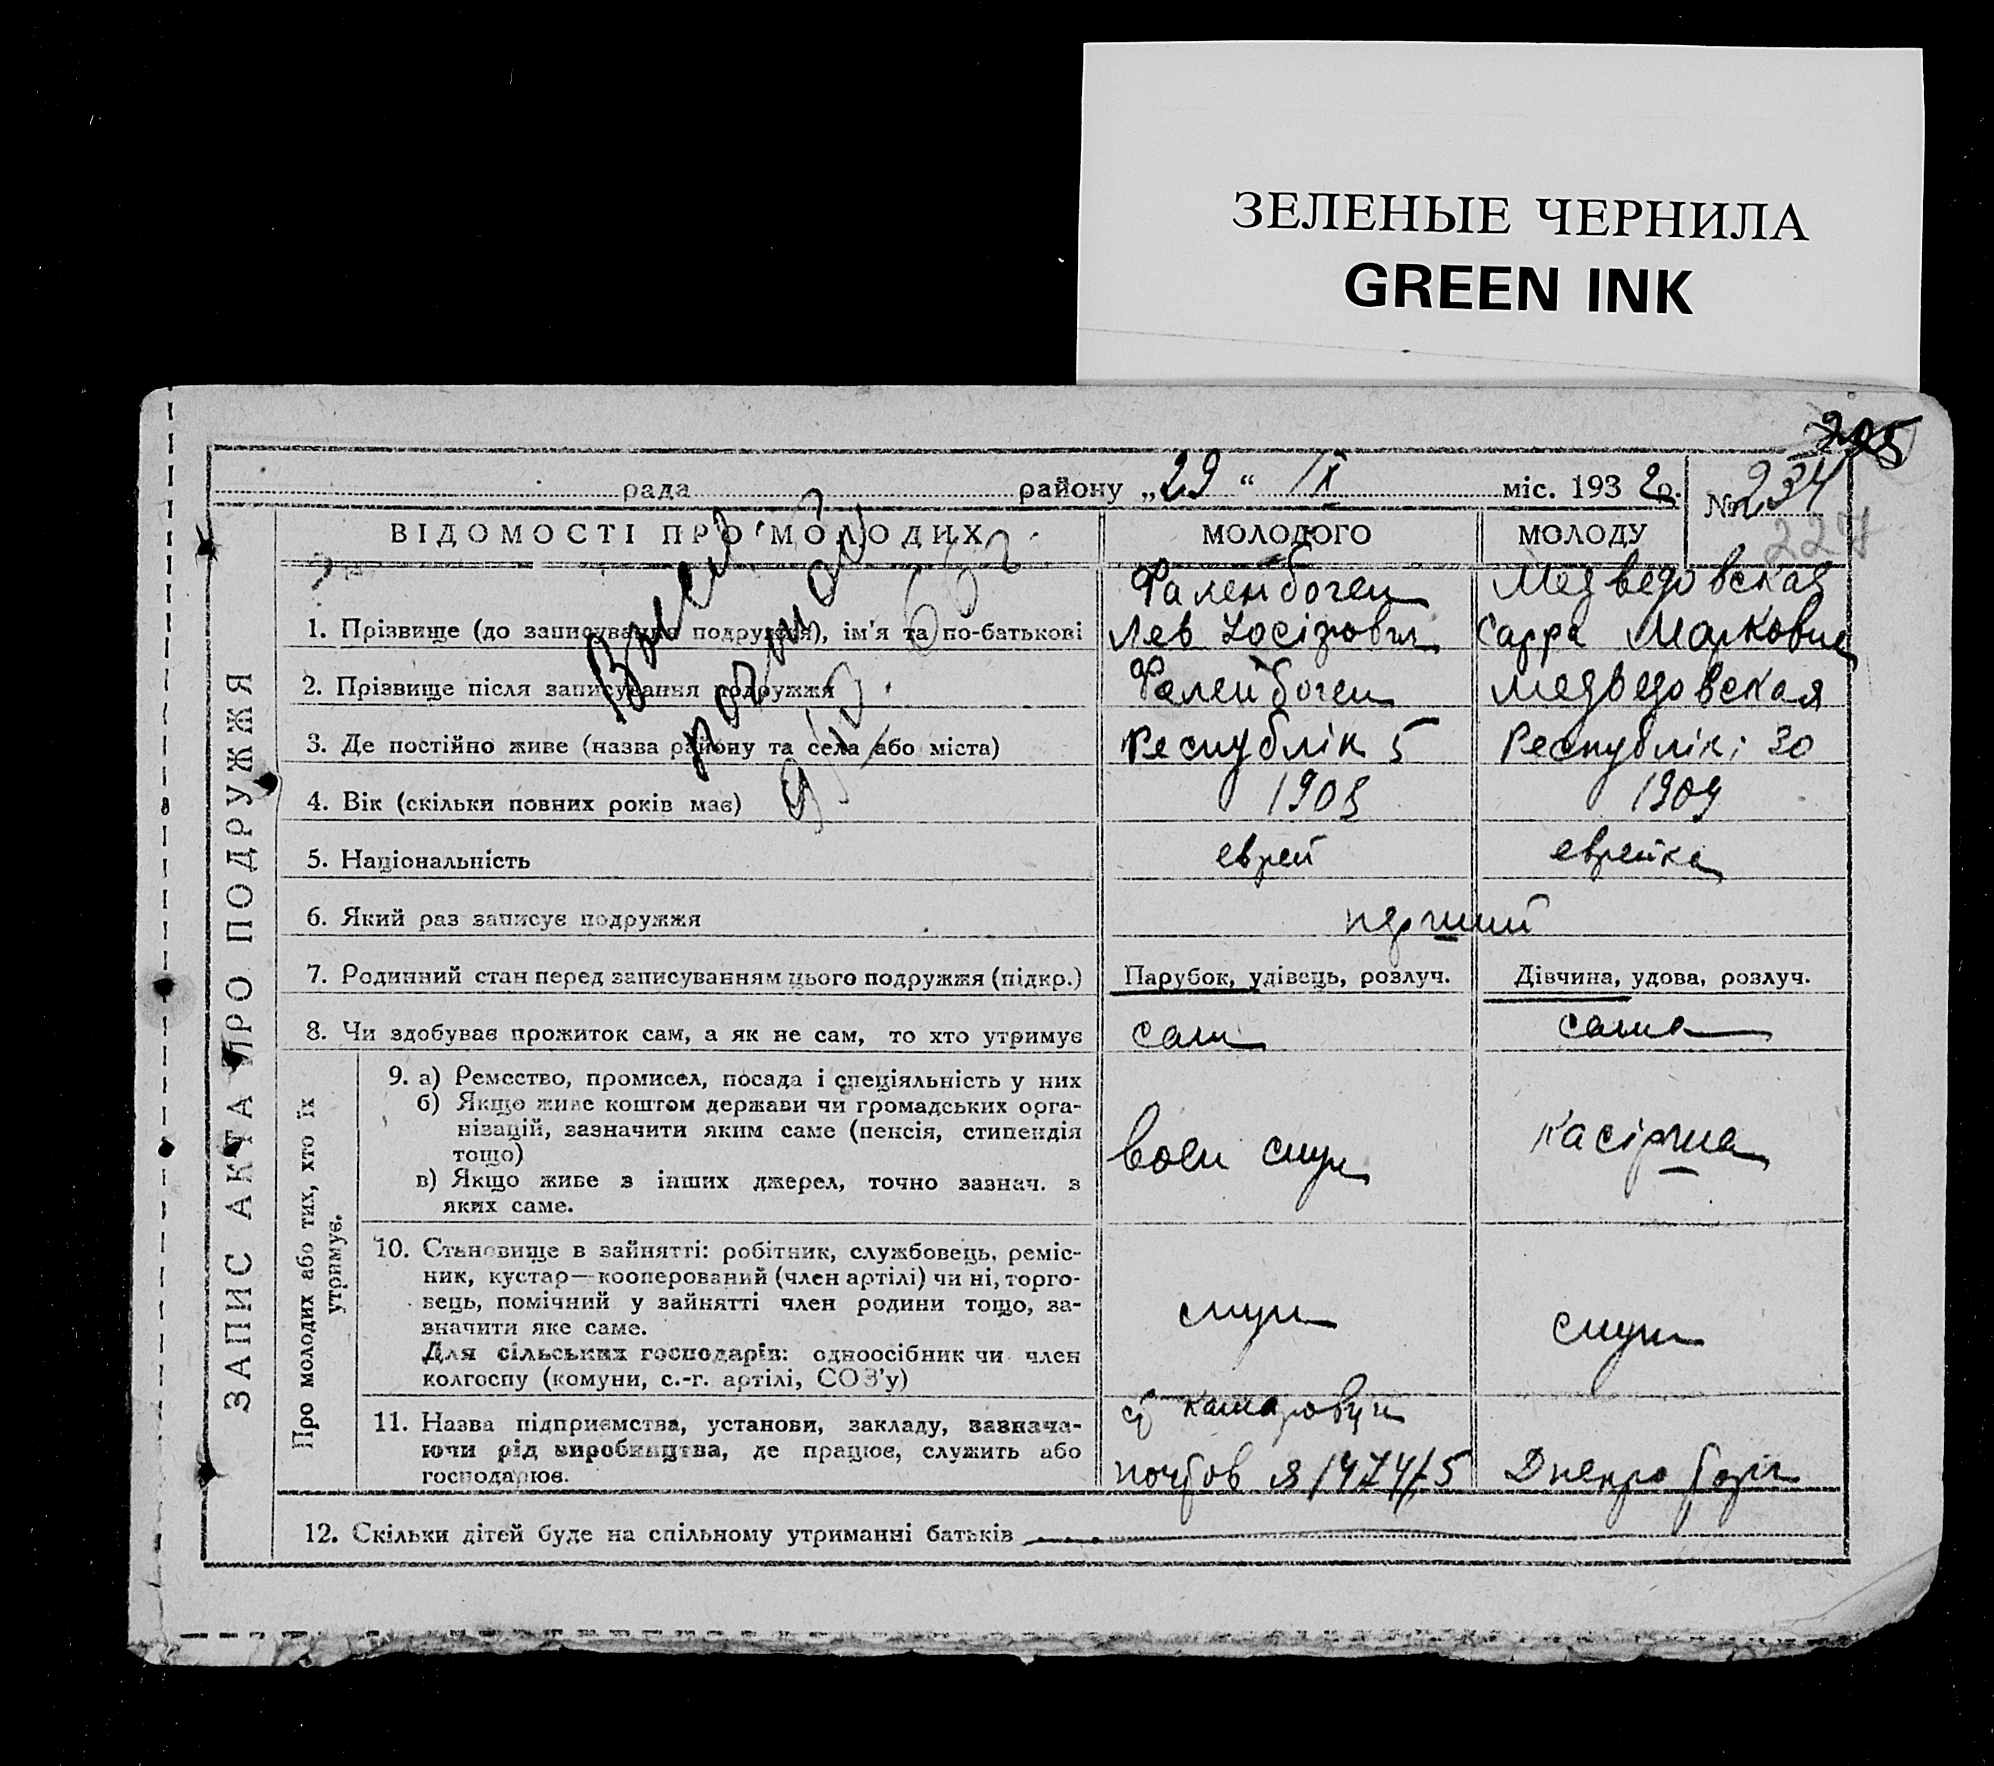 ЗЕЛЕНЫЕ ЧЕРНИЛА
GREEN INK
205
рада району „29“ IX міс. 1932 р. № 234
227
ЗАПИС АКТА ПРО ПОДРУЖЖЯ
ВІДОМОСТІ ПРО МОЛОДИХ МОЛОДОГО МОЛОДУ
Фаленбоген Медведовская
1. Прізвище (до записування подружжя), ім'я та по-батькові Лев Сарра Марковна
2. Прізвище після записування подружжя Фаленбоген Медведовская
3. Де постійно живе (назва району та села або міста) Республік 5 Республікі 30
4. Вік (скільки повних років має) 1909
5. Національність еврей еврейка
6. Який раз записує подружжя перший
7. Родинний стан перед записуванням цього подружжя (підкр.) Парубок, удівець, розлуч. Дівчина, удова, розлуч.
8. Чи здобуває прожиток сам, а як не сам, то хто утримує сам сама
Про молодих або тих, хто їх
утримує.
9. а) Ремество, промисел, посада і спеціяльність у них
б) Якщо живе коштом держави чи громадських орга-
нізацій, зазначити яким саме (пенсія, стипендія
тощо)
в) Якщо живе з інших джерел, точно зазнач. з
яких саме.
касірша
10. Становище в зайнятті: робітник, службовець, реміс-
ник, кустар—кооперований (член артілі) чи ні, торго-
вець, помічний у зайнятті член родини тощо, за-
значити яке саме.
Для сільських господарів: одноосібник чи член
колгоспу (комуни, с.-г. артілі, СОЗ'у)
11. Назва підприємства, установи, закладу, зазнача-
ючи рід виробництва, де працює, служить або
господарює.
12. Скільки дітей буде на спільному утриманні батьків